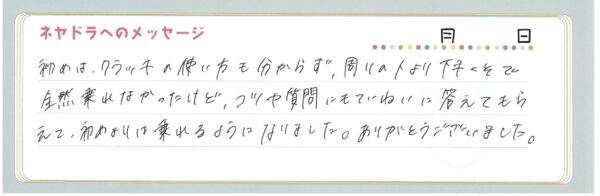 ネヤドラへのメッセージ
月 日
初めは、クラッチの使い方も分からず、周りの人より下手くそで
全然乗れなかったけど、コツや質問にもていねいに答えてもら
えて、初めよりは乗れるようになりました。ありがとうございました。